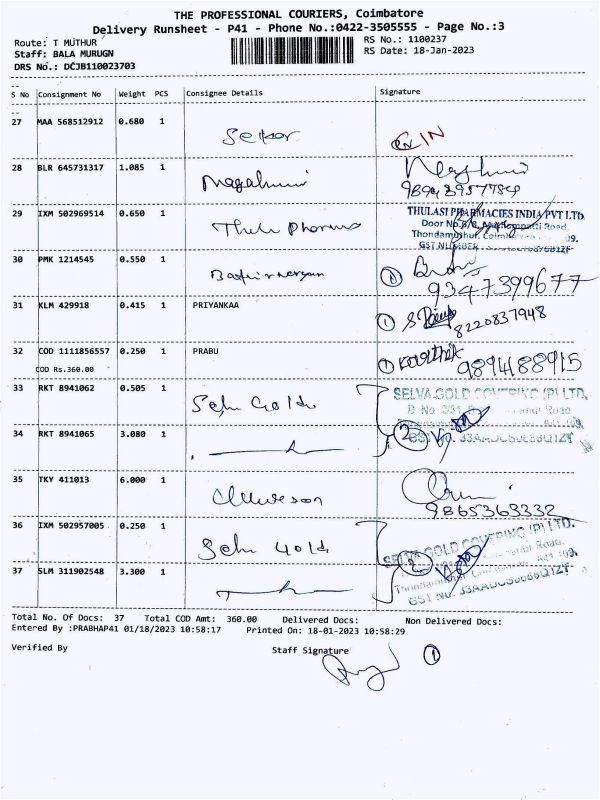 THE PROFESSIONAL COURIERS, Coimbatore
Delivery Runsheet - P41 - Phone No.:0422-3505555 - Page No.:3
Route: T MUTHUR
RS No.: 1100237
Staff: BALA MURUGN
RS Date: 18-Jan-2023
DRS No.: DCJB110023703
S No Consignment No Weight PCS Consignee Details Signature
27 MAA 568512912 0.680 1
28 BLR 645731317 1.085 1
29 IXM 502969514 0.650 1
THULASI PHARMACIES INDIA PVT LTD.
Door No.
Road,
GST NUMBER
30 PMK 1214545 0.550 1
9347399677
31 KLM 429918 0.415 1 PRIYANKAA
8220837948
32 COD 1111856557 0.250 1 PRABU
Karthik 9894188915
COD Rs.360.00
33 RKT 8941062 0.505 1 Selva Gold
SELVA GOLD COVERING (P) LTD.
34 RKT 8941065 3.080 1
2
35 TKY 411013 6.000 1
9865363332
36 IXM 502957005 0.250 1 Selva Gold
SELVA GOLD COVERING (P) LTD.
37 SLM 311902548 3.300 1
2
Total No. Of Docs: 37 Total COD Amt: 360.00 Delivered Docs: Non Delivered Docs:
Entered By :PRABHAP41 01/18/2023 10:58:17 Printed On: 18-01-2023 10:58:29
Verified By Staff Signature
1